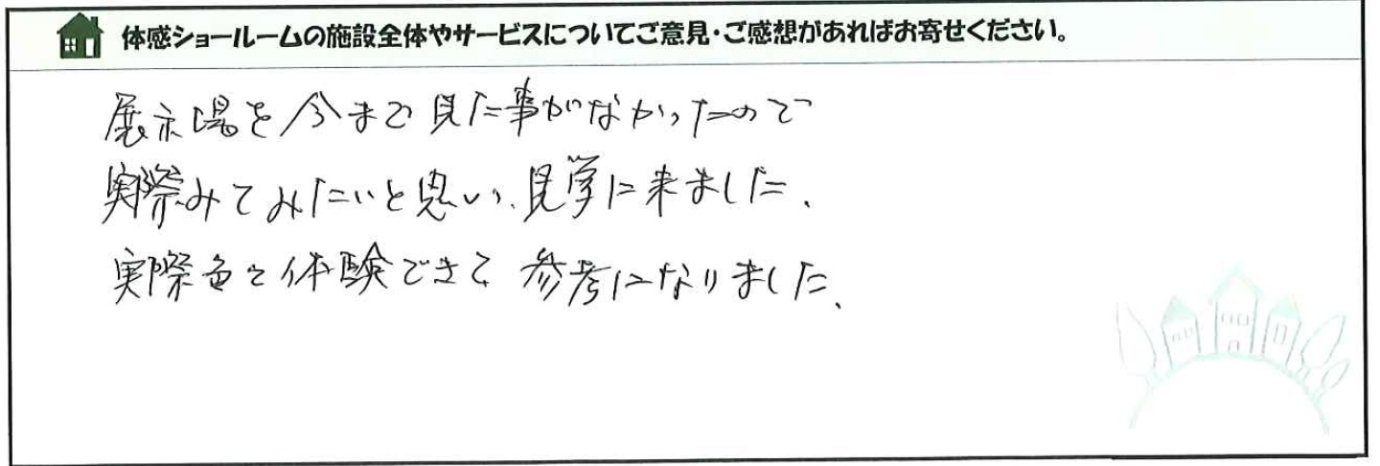 体感ショールームの施設全体やサービスについてご意見・ご感想があればお寄せください。
展示場を今まで見た事がなかったので
実際みてみたいと思い、見学に来ました。
実際色々体験できて参考になりました。